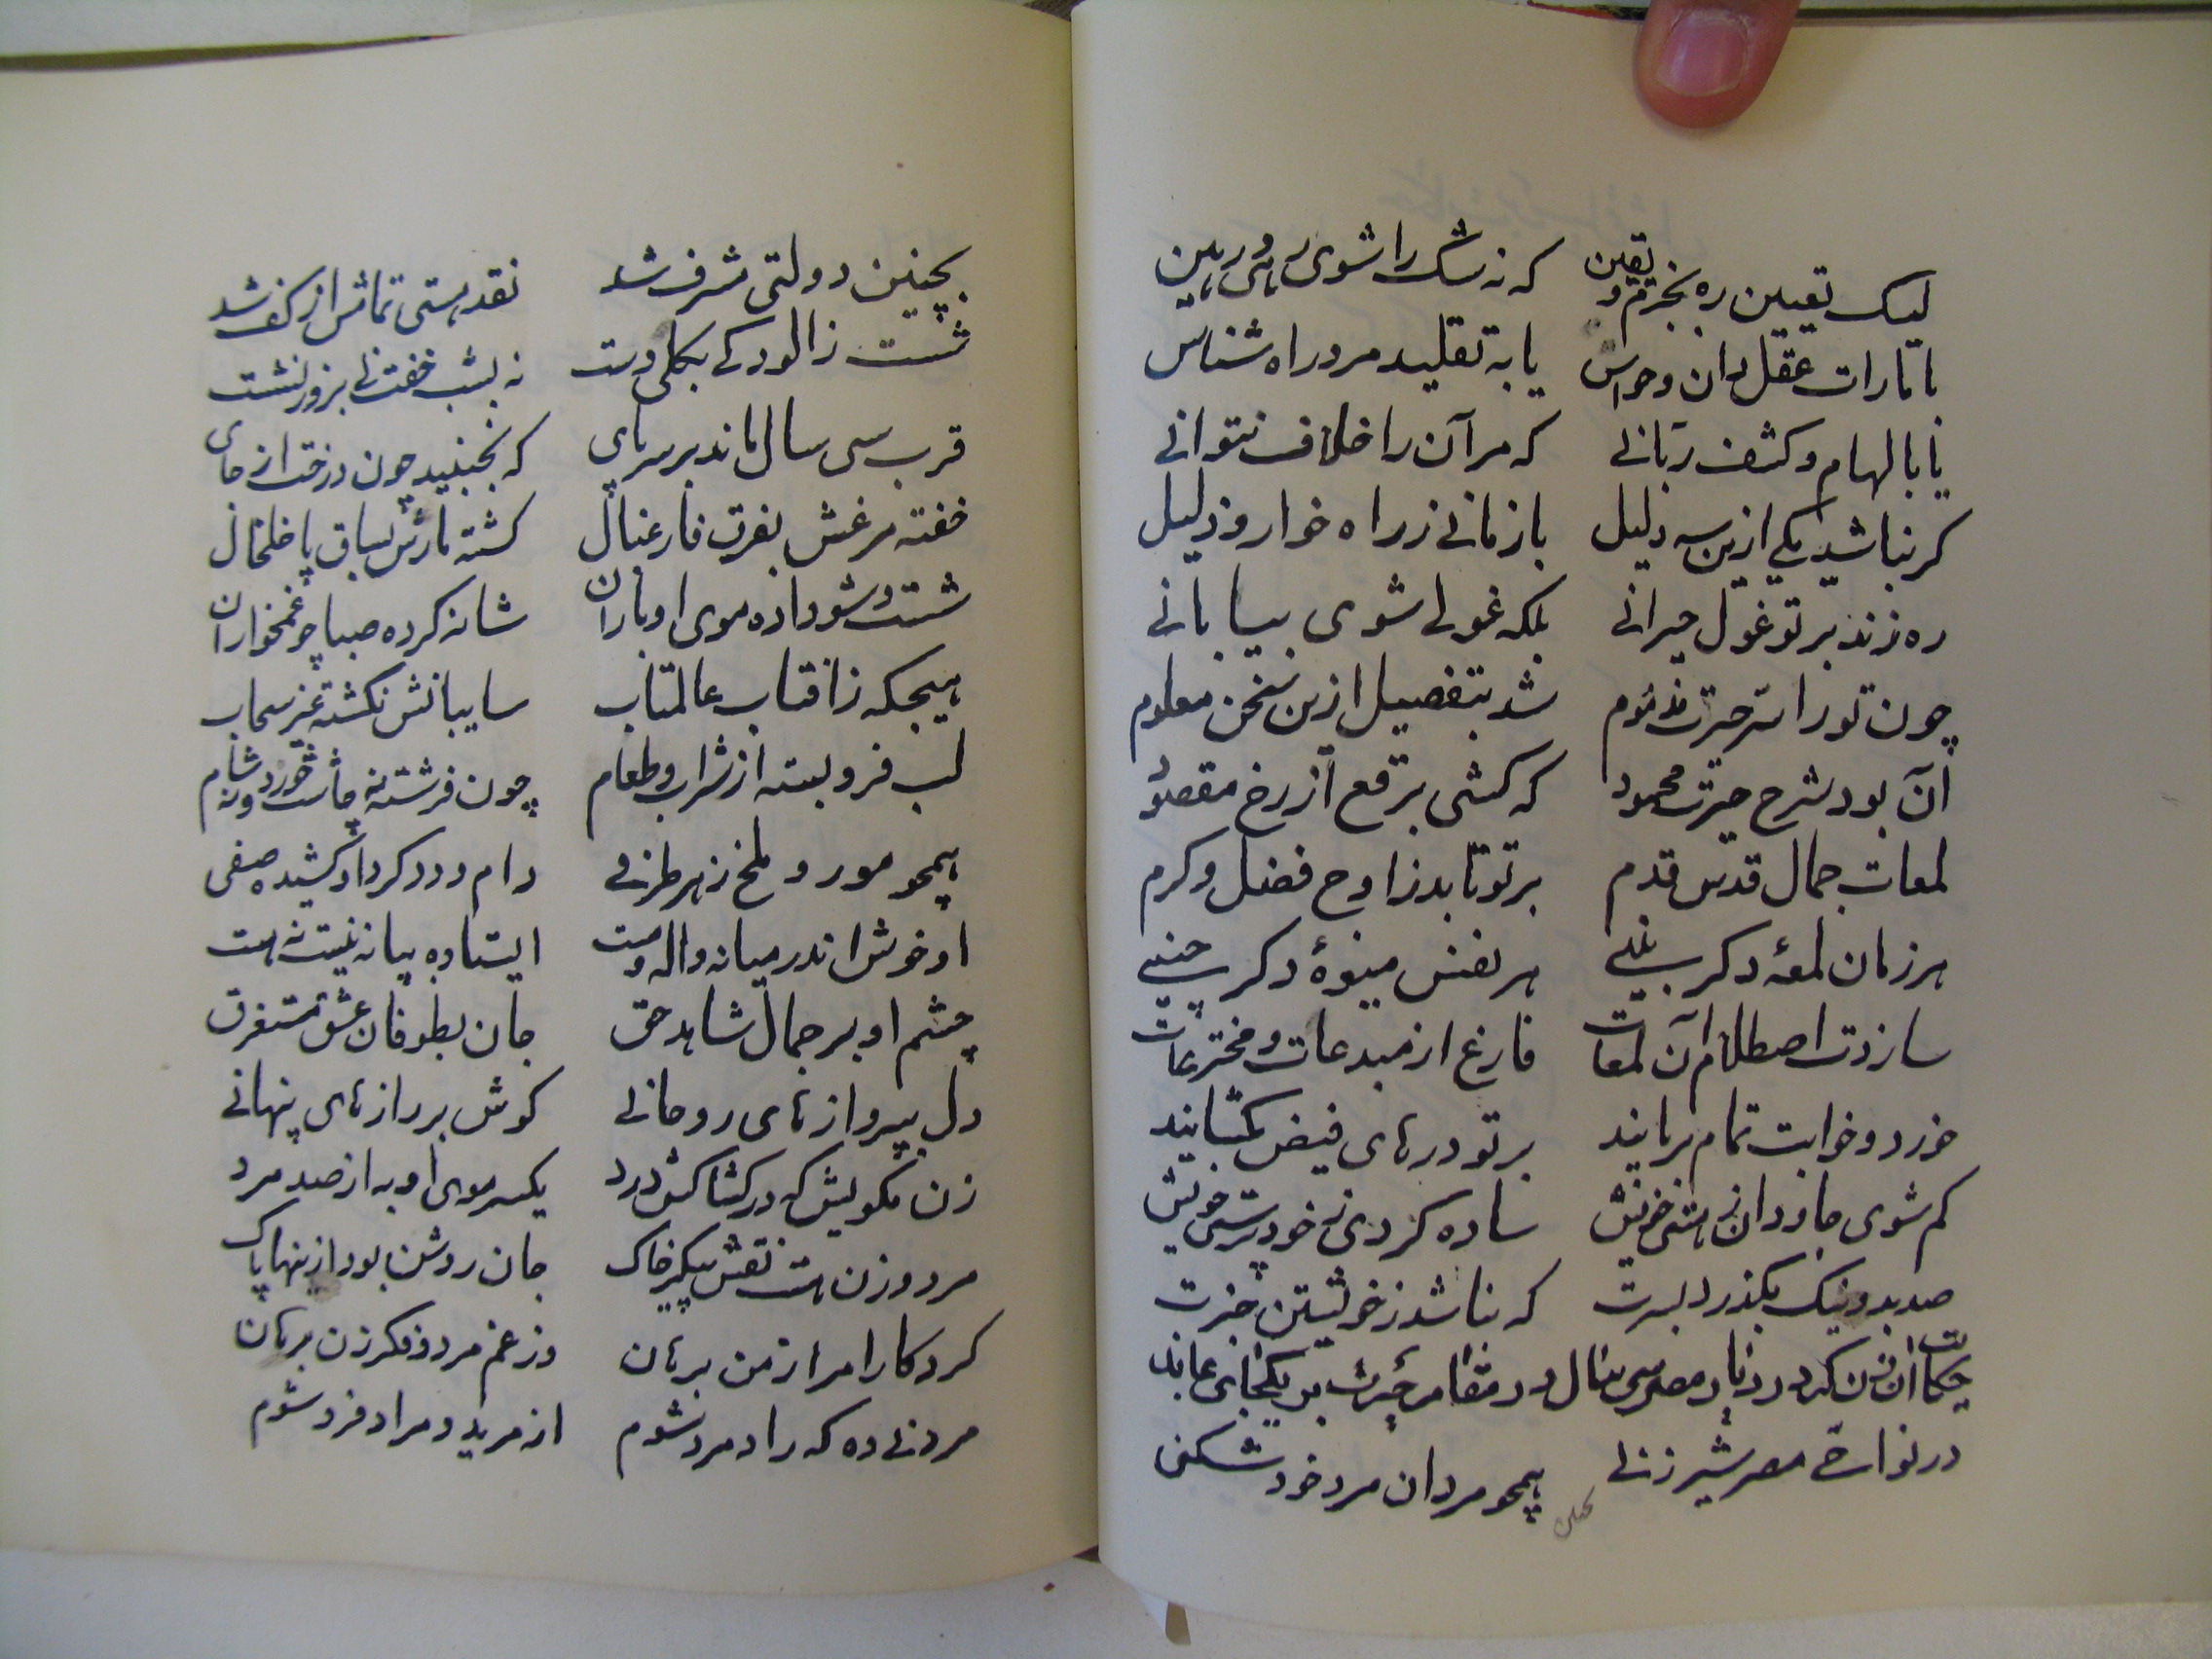 لیک تعیین ره بجزم و یقین که نه شک را شوی رهی و رهین
یا بامارات عقل دان و حواس یا به تقلید مرد راه شناس
یا بالهام و کشف ربانی که مر آن را خلاف نتوانی
کر نباشد یکی ازین سه دلیل بازمانی ز راه خوار و ذلیل
ره زند بر تو غول حیرانی بلکه غولی شوی بیابانی
چون تو را سر حیرت مذموم شد بتفصیل ازین سخن معلوم
آن بود شرح حیرت محمود که کشی برقع از رخ مقصود
لمعات جمال قدس قدم بر تو تابد ز اوج فضل و کرم
هر زمان لمعهٔ دکر بینی هر نفس میوهٔ دکر چینی
سازدت اصطلام آن لمعات فارغ از مبدعات و مخترعات
خورد و خوابت تمام بربایند بر تو درهای فیض بکشایند
کم شوی جاودان ز هستی خویش ساده کردی ز خودپرستی خویش
صد بد و نیک بکذرد بسرت که نباشد ز خویشتن خبرت
حکایت آن زن که در دیار مصر سی سال در مقام حیرت بر یکجای بماند
در نواحی مصر شیرزنی همچو مردان مرد خودشکنی
بچنین دولتی مشرف شد نقد هستی تماش از کف شد
شست ز آلودکی بکلی دست نه بشب خفت نی بروز نشست
قرب سی سال ماند بر سر پای که نجنبید چون درخت از جای
خفته مرغش بفرق فارغبال کشته مارش بساق پا خلخال
شست و شو داده موی او باران شانه کرده صبا چو غمخواران
هیچکه ز آفتاب عالمتاب سایبانش نکشته غیر سحاب
لب فرو بسته از شراب و طعام چون فرشته نه چاشت خورد و نه شام
همچو مور و ملخ ز هر طرفی دام و دد کرد او کشیده صفی
او خوش اندر میانه واله و مست ایستاده بپا نه نیست نه هست
چشم او بر جمال شاهد حق جان بطوفان عشق مستغرق
دل بپروازهای روحانی کوش بر رازهای پنهانی
زن مکویش که در کشاکش درد یکسر موی او به از صد مرد
مرد و زن هست نقش پیکر خاک جان روشن بود ازینها پاک
کردکارا مرا ز من برهان وز غم مرد و فکر زن برهان
مردئی ده که راد مرد شوم از مرید و مراد فرد شوم